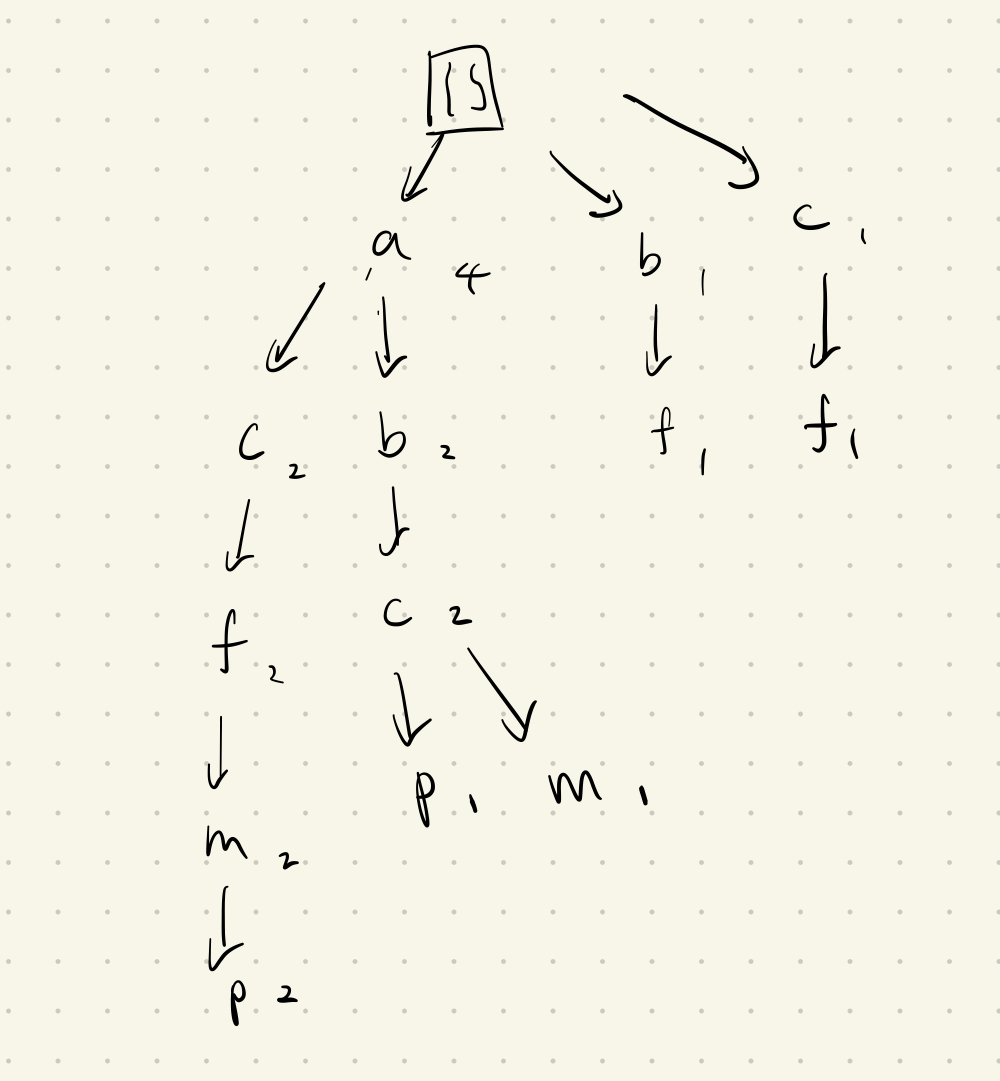 15
a 4 b 1 c 1
c 2 b 2 f 1 f 1
f 2 c 2
m 2 p 1 m 1
p 2